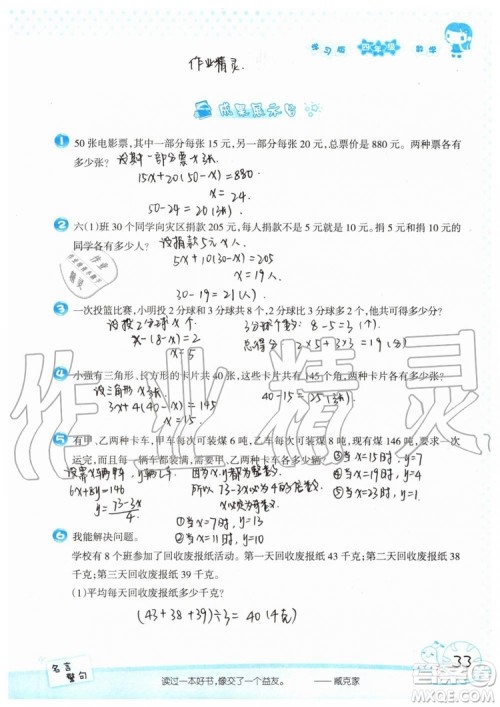 练习版 四年级 数学
作业精灵.
成果展示台
1 50 张电影票,其中一部分每张 15 元,另一部分每张 20 元,总票价是 880 元。两种票各有多少张? 设其中一部分票x张
15x+20(50-x)=880
x=24.
50-24=26(张)
2 六(1)班 30 个同学向灾区捐款 205 元,每人捐款不是 5 元就是 10 元。捐 5 元和捐 10 元的同学各有多少人? 设捐款5元x人.
5x+10(30-x)=205
x=19人.
30-19=21(人)
3 一次投篮比赛,小明投 2 分球和 3 分球共 8 个,2 分球比 3 分球多 2 个,他共可得多少分?
设投2分球x个. 3分球个数: 8-5=3(个)
x+x-2=8 总得分: 2×5+3×3=19(分)
x=5
4 小强有三角形、长方形的卡片共 40 张,这些卡片共有 145 个角,两种卡片各有多少张?
设三角形x张 40-15=25(张)
3x+4(40-x)=145
x=15
5 有甲、乙两种卡车,甲车每次可装煤 6 吨,乙车每次可装煤 8 吨,现有煤 146 吨,要求一次运完,而且一辆车都要装满,需甲、乙两种卡车各多少辆?
设需x辆甲车,y辆乙车. 因为x,y都为整数
6x+8y=146 所以73-3x必为4的倍数
y=(73-3x)/4 x必定为奇数
①当x=7时,y=13
②当x=11时,y=10
③当x=15时,y=7
④当x=19时,y=4
⑤当x=23时,y=1
6 我能解决问题。
学校有 8 个班参加了回收废报纸活动。第一天回收废报纸 43 千克;第二天回收废报纸 38 千克;第三天回收废报纸 39 千克。
(1)平均每天回收废报纸多少千克?
(43+38+39)÷3=40(千克)
名言警句
读过一本好书,像交了一个益友。 ——臧克家
33
作业精灵